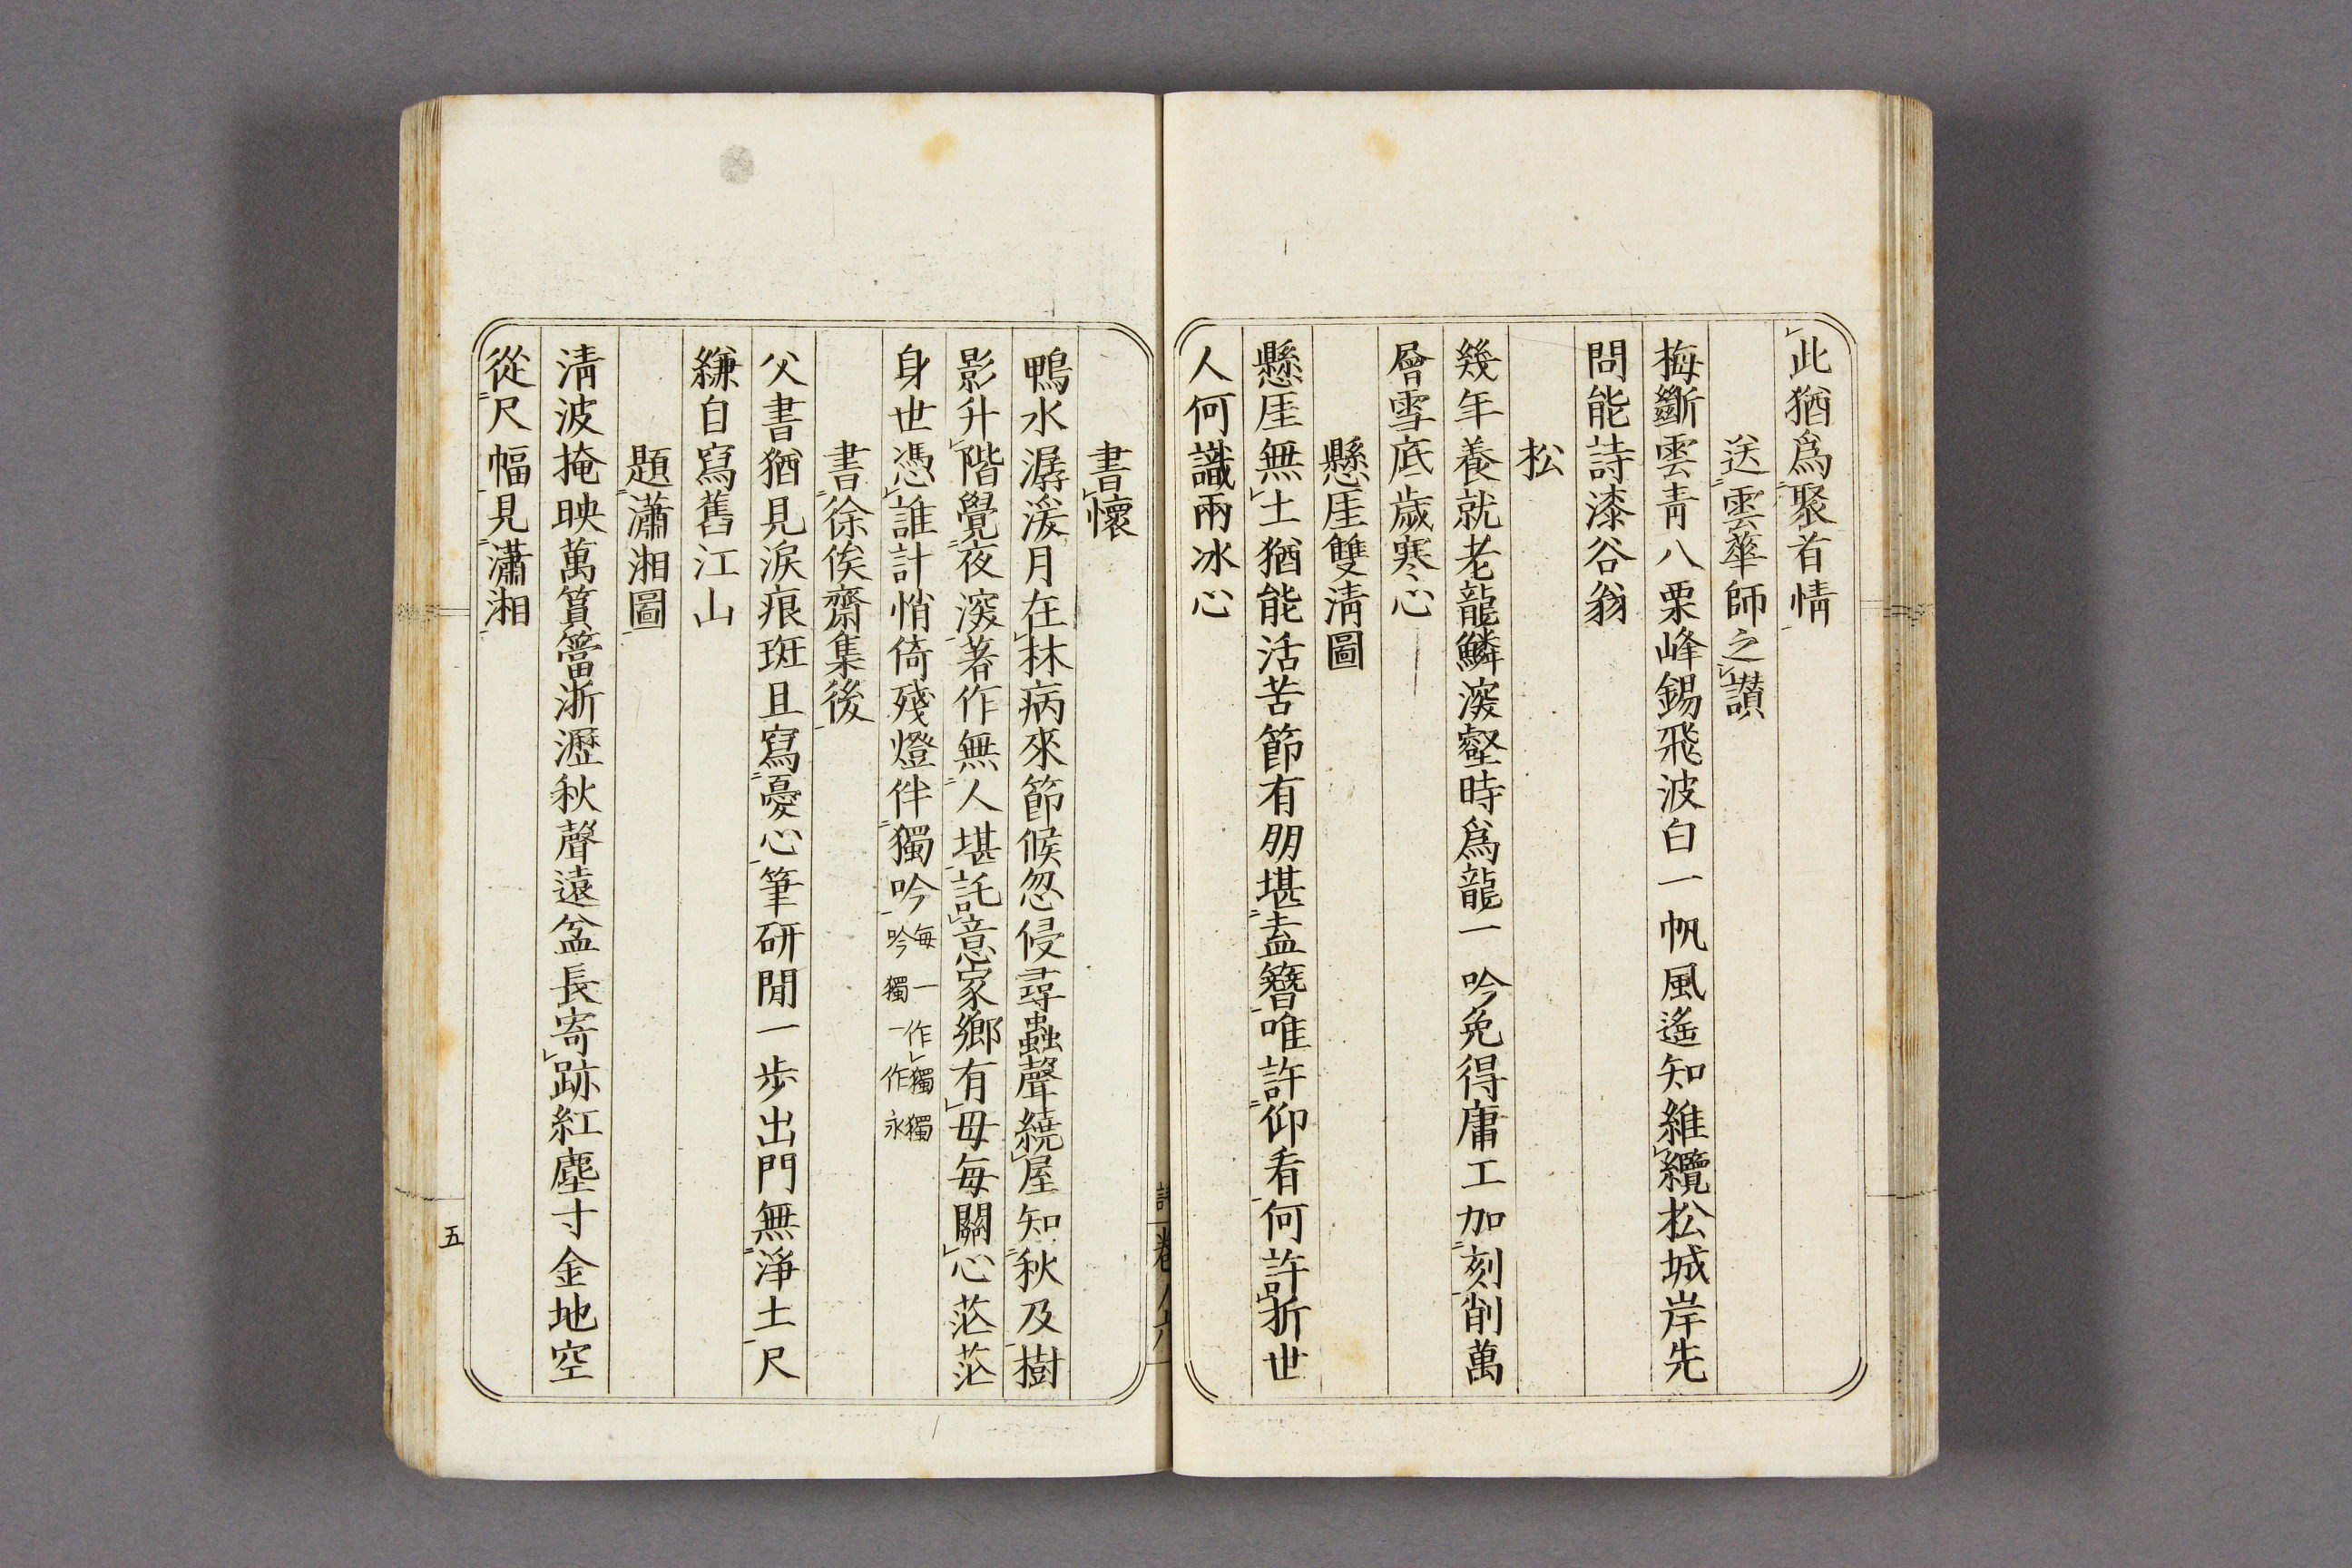 此猶爲聚首情
送雲華師之讃
梅斷雲靑八栗峰錫飛波白一帆風遙知維纜松城岸先
問能詩漆谷翁
松
幾年養就老龍鱗深壑時爲龍一吟免得庸工加刻削萬
層雪底歲寒心
懸厓雙淸圖
懸厓無土猶能活苦節有朋堪盍簪唯許仰看何許折世
人何識兩冰心
詩
書懷
鴨水潺湲月在林病來節候忽侵尋蟲聲繞屋知秋及樹
影升階覺夜深著作無人堪託意家鄕有母每關心茫茫
身世憑誰計悄倚殘燈伴獨吟每一作獨獨吟獨一作永
書徐俟齋集後
父書猶見淚痕斑且寫憂心筆硏閒一步出門無淨土尺
縑自寫舊江山
題瀟湘圖
淸波掩映萬篔簹淅瀝秋聲遠盆長寄跡紅塵寸金地空
從尺幅見瀟湘
五